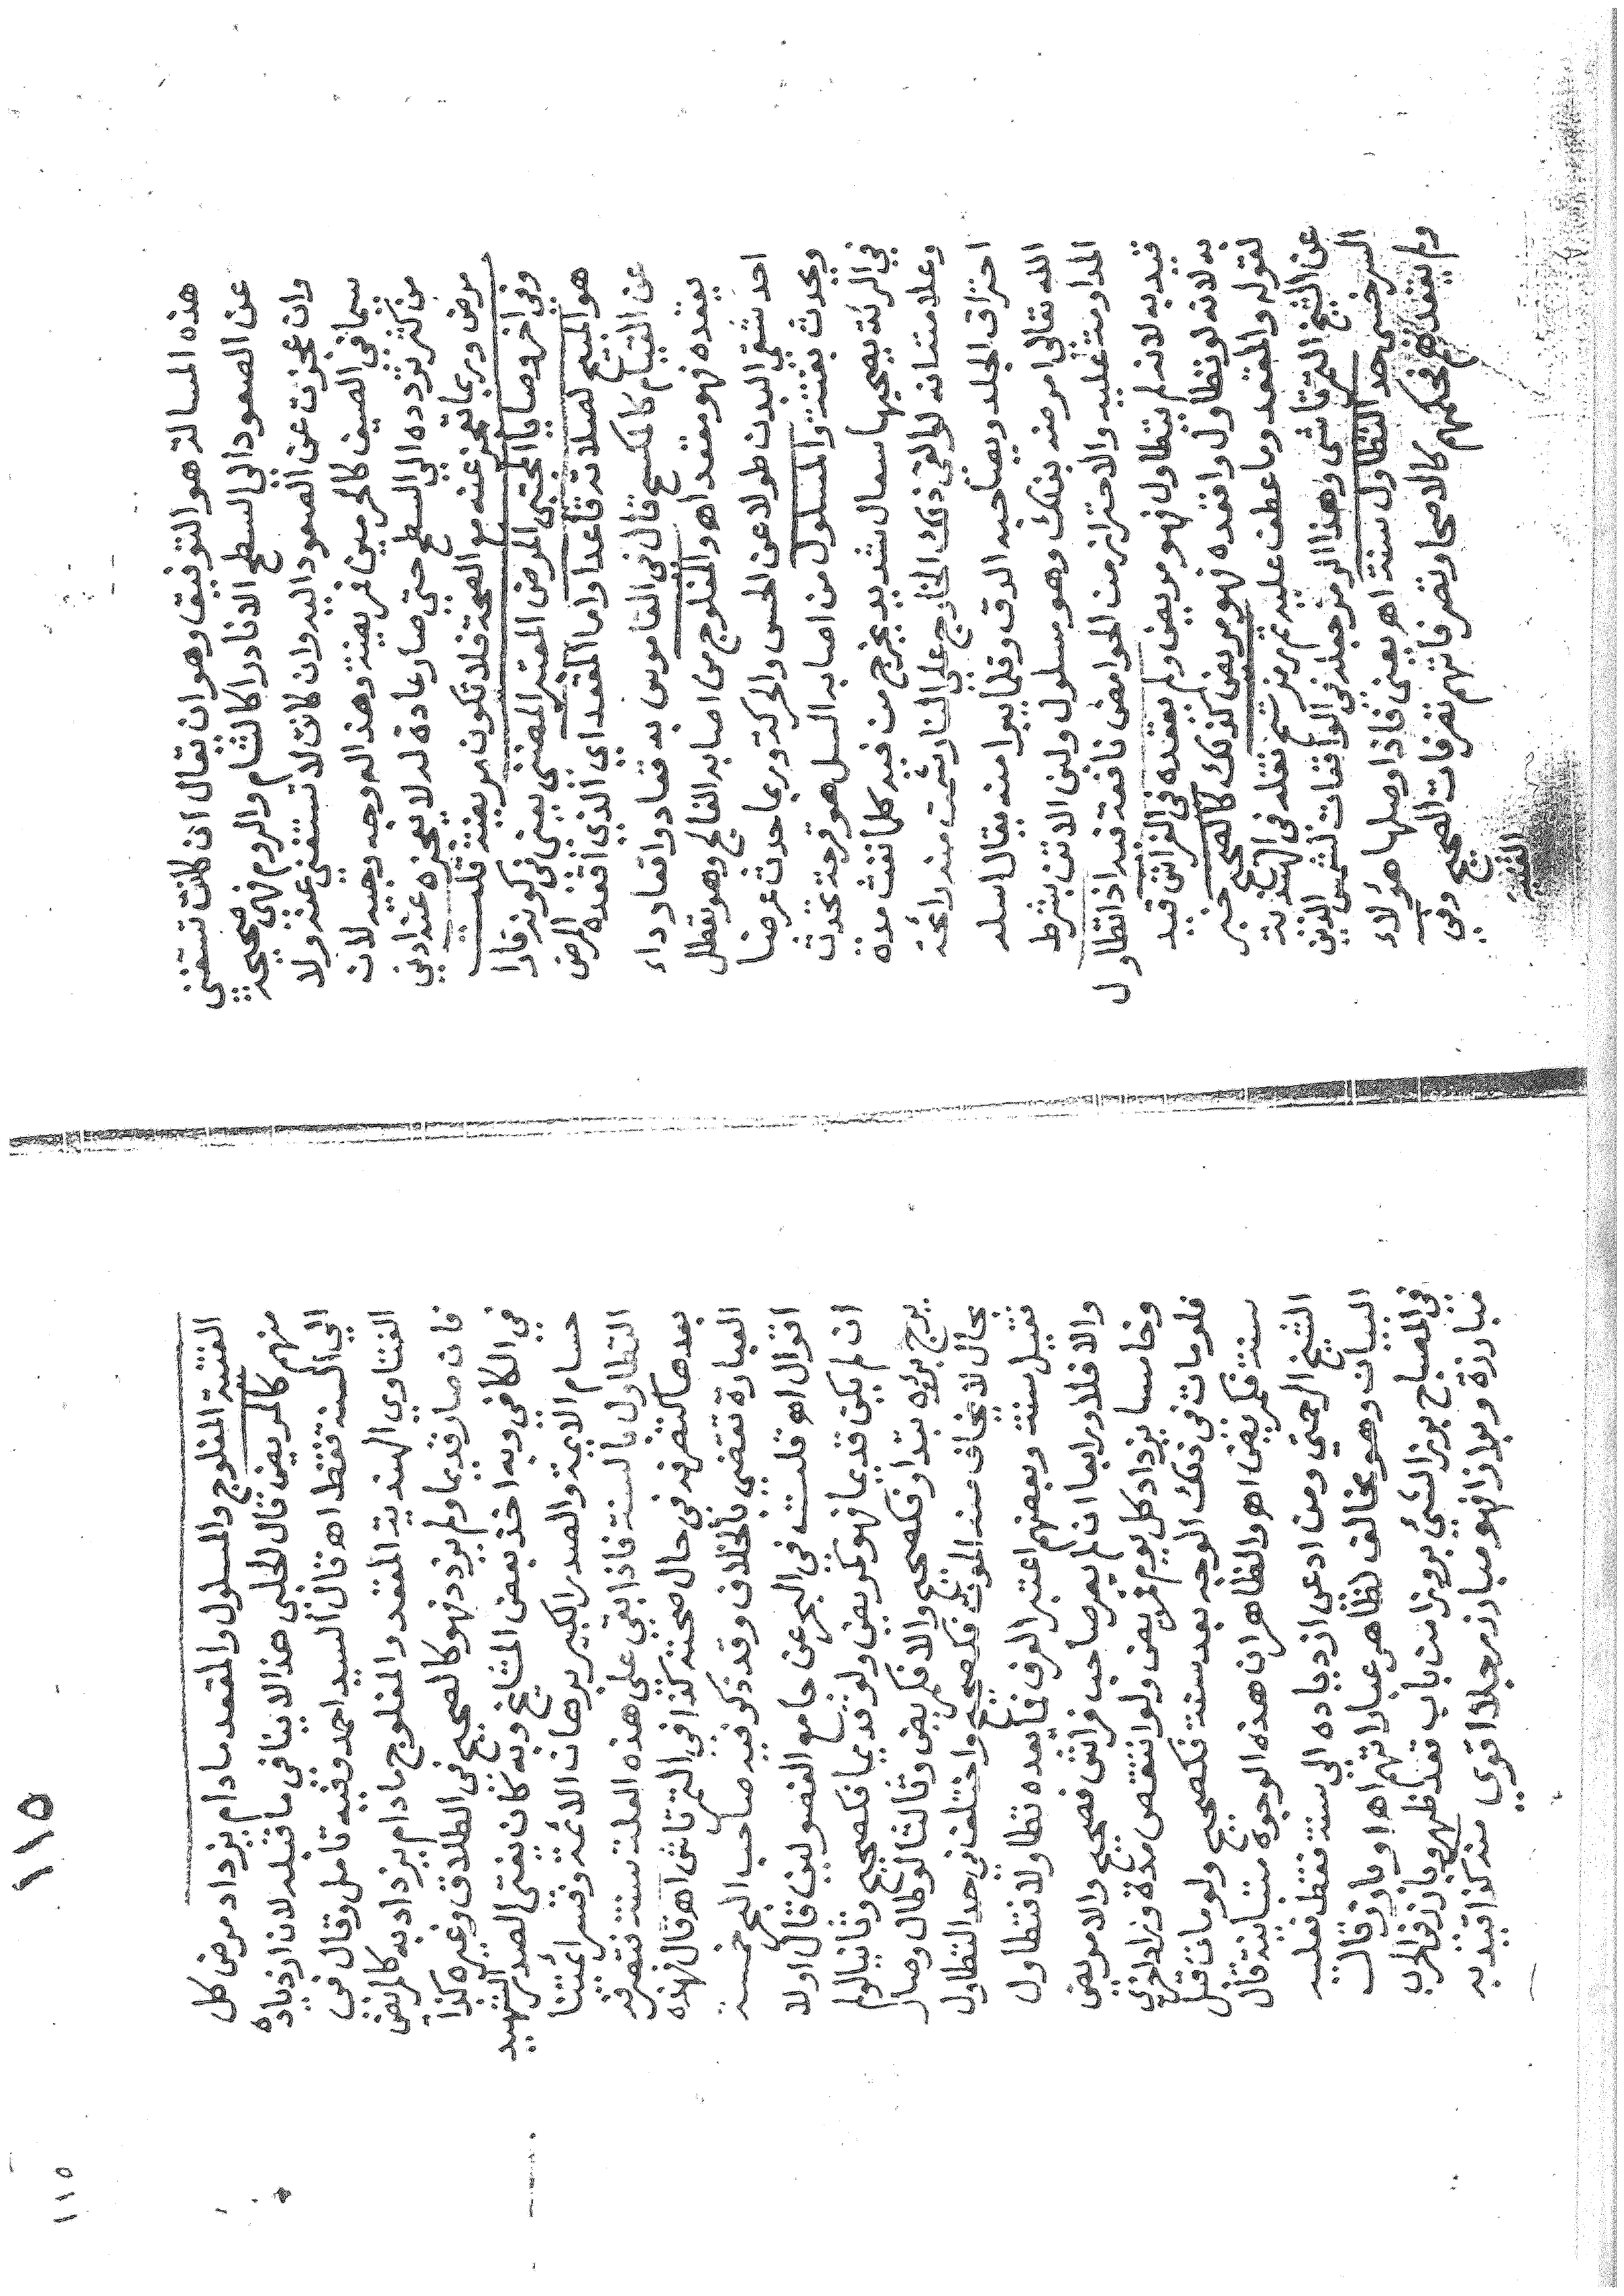 هذه المسالة هو التوفيق وهو ان يقال ان كانت تستغنى
عن الصعود الى السطح الا نادرا كالشام والروم فهى صحيحة
وان عجزت عن الصعود اليه وان كانت لا تستغنى عنه ولا
سيما فى الصيف كالحرمين فمريضة وهذا له وجه وجيه لان
من كثر تردده الى السطح حتى صار عادة له لا يعجزه عنه ادنى
مرض وربما يعجز عنه مع الصحة فلا تكون مريضة قلت
وفى اخر وصايا المجتبى المرض المعتبر المضنى يعنى فى كونه فارا
هو المبيح لصلاته قاعدا واما المقعد اى الذى اقعده المرض
عن القيام كالمكسح قال فى القاموس به قعاد واقعاد داء
يقعده فهو مقعد اهـ والمفلوج من اصابه الفالج وهو تعطل
احد شقى البدن طولا عن الحس والحركة وربما حدث عرضا
ويحدث بغتة والمسلول من اصابه السل هو قرحة تحدث
فى الرئة يصحبها سعال شديد يخرج من فيه كلما نفث مدة
وعلامتها انه لو القى ذلك الخارج على النار شمت منه رائحة
احتراق الجلد ويصاحبه الدق وقلما يبرا منه يقال اسله
الله تعالى امرضه بذلك وهو مسلول ولبن الاتن بشرط
المداومة عليه والاحتراز من الحوامض نافعة فيه اذا تطاول
قيد به لانه لم يتطاول فهو مريض ولم يقعده فى الفراش قيد
به لانه لو تطاول واقعده فهو مريض كذلك كالصحيح خبر
لقوله والمقعد وما عطف عليه ثم رمز شح نقله فى الهندية
عن الشيخ التمرتاشى وهذا الرمز جعله فى الواقعات لشمس الدين
السرخسى حد التطاول سنة اهـ يعنى فاذا وصلها هؤلاء
ولم يقعدهم فحكمهم كالاصحا وتصرفاتهم تصرفات الصحيح وفى
القنية
١١٥
القنية المفلوج والمسلول والمقعد ما دام يزداد مرض كل
منهم كالمريض قال الحلبى هذا لا ينافى ما قبله لان ازدياده
الى السنة فقط اهـ قال السيد احمد وفيه تامل وقال فى
الفتاوى الهندية المقعد والمفلوج ما دام يزداد به كالمريض
فان صار قديما ولم يزدد فهو كالصحيح فى الطلاق وغيره كذا
فى الكافى وبه اخذ بعض المشايخ وبه كان يفتى الصدر الشهيد
حسام الايمة والصدر الكبير برهان الائمة وفسر ائمتنا
التطاول بالسنة فاذا بقى على هذه العلة سنة فتصرفه
بعدها كتصرفه فى حال صحته كذا فى التمرتاشى اهـ قال فهذه
العبارة تقتضى بالخلاف وقد ذكر فيه صاحب البحر خمسة
اقوال اهـ قلت فى البحر عن جامع الفصولين قال اولا
ان لم يكن قديما فهو كمريض ولو قديما فكصحيح وثانيا لو لم
يرج برؤه بتداو فكصحيح والا فكمريض وثالثا لو طال وصار
بحال لا يخاف منه الموت فكصحيح واختلف فى حد التطاول
فقيل سنة وبعضهم اعتبر العرف فما يعده تطاولا فتطاول
والا فلا ورابعا ان لم يصر صاحب فراش فصحيح والا مريض
وخامسا يزداد كل يوم فمريض ولو انتقص مدة وزاد اخرى
فلو مات فى ذلك الوجه بعد سنة فكصحيح ولو مات قبل
سنة فكمريض اهـ والظاهر ان هذه الوجوه متباينة قال
الشيخ الرحمتى ومن ادعى ازدياده الى سنة فقط فعليه
البيان وهو مخالف لظاهر عباراتهم اهـ او بارز قال
فى المصباح برز الشئ بروزا من باب قعد ظهر وبارز فى الحرب
مبارزة وبرازا فهو مبارز رجلا اقوى منه كذا قيد به
١١٥